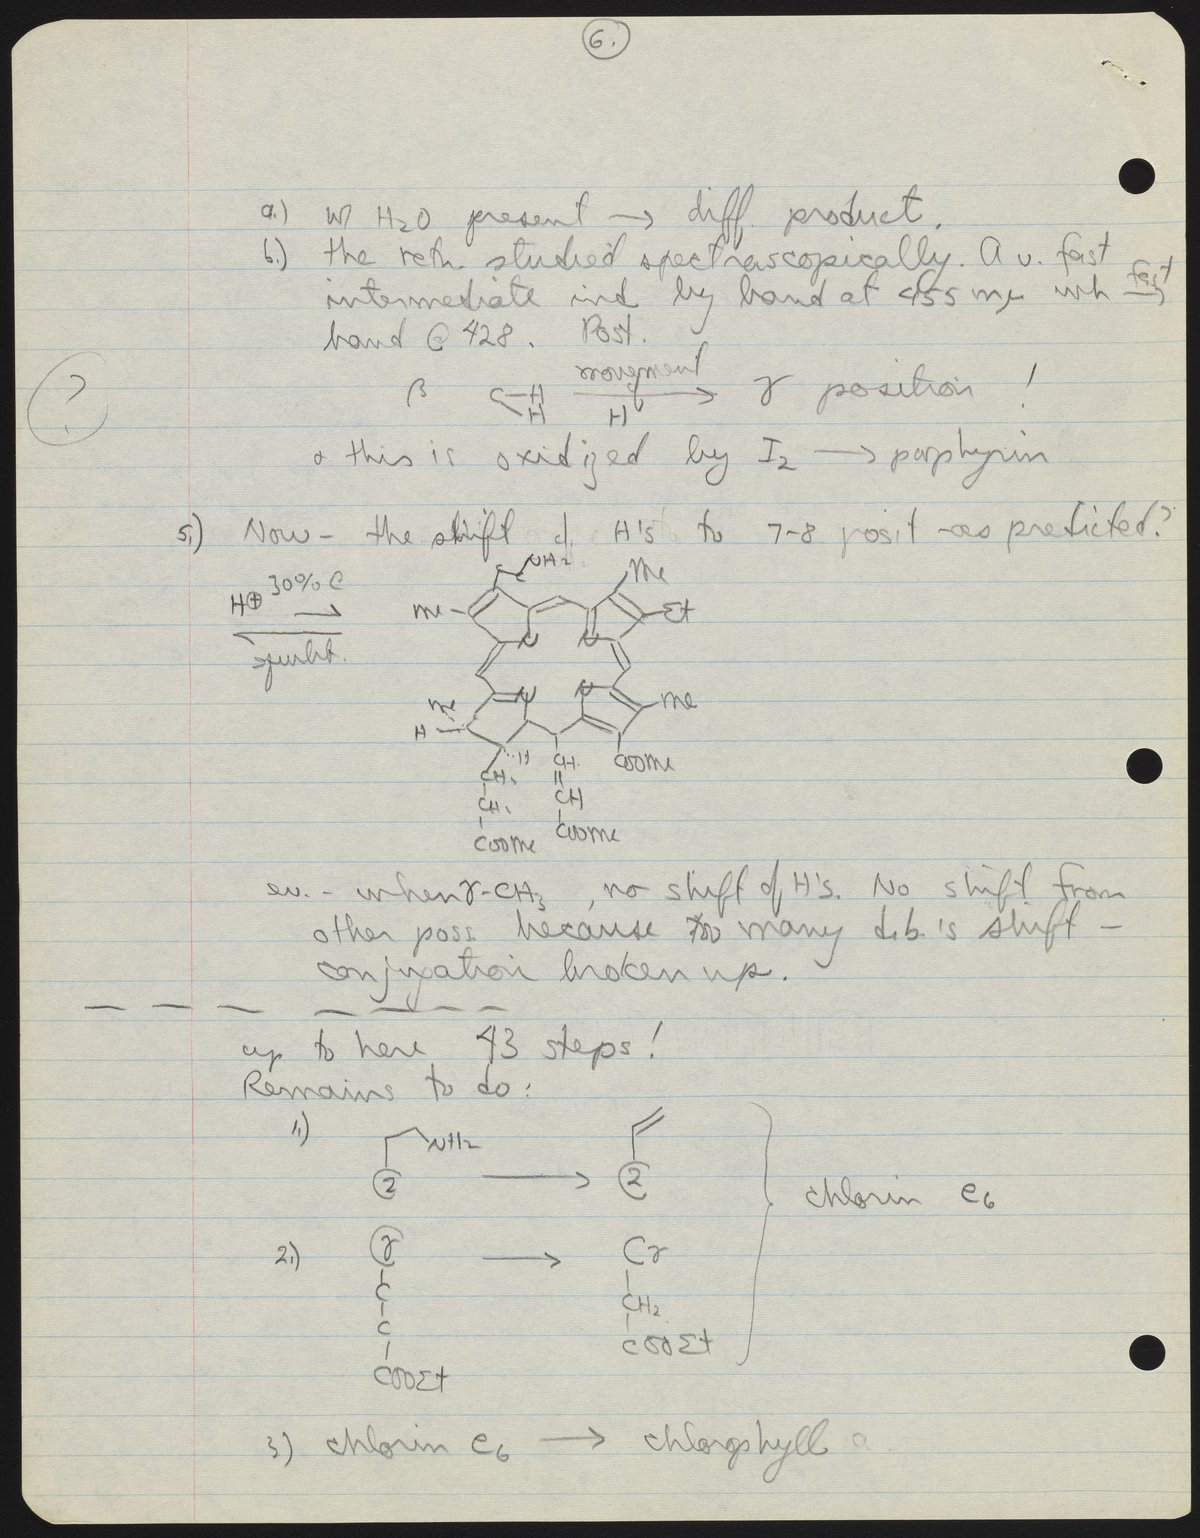 6.
a.) w/ H2O present → diff. product.
b.) the rctn. studied spectrascopically. A v. fast
intermediate ind by band at 455 mμ wh fast →
band @ 428. Post.
β C-H H movement H → γ position !
? & this is oxidized by I2 → porphyrin
5.) Now - the shift of H's to 7-8 posit -as predicted?
H⊕ 30% C →
NH2
Me
Me- Et
N N
N N
Me Me
H
H CH COOMe
CH2 || 
CH2 CH
COOMe COOMe
ev. - when γ-CH3, no shift of H's. No shift from
other poss. because too many d.b.'s shift -
conjugation broken up.
up to here 43 steps!
Remains to do:
1.) NH2
2 → 2
chlorin e6
2.) γ → Cγ
C CH2
C COOEt
COOEt
3.) chlorin e6 → chlorophyll a